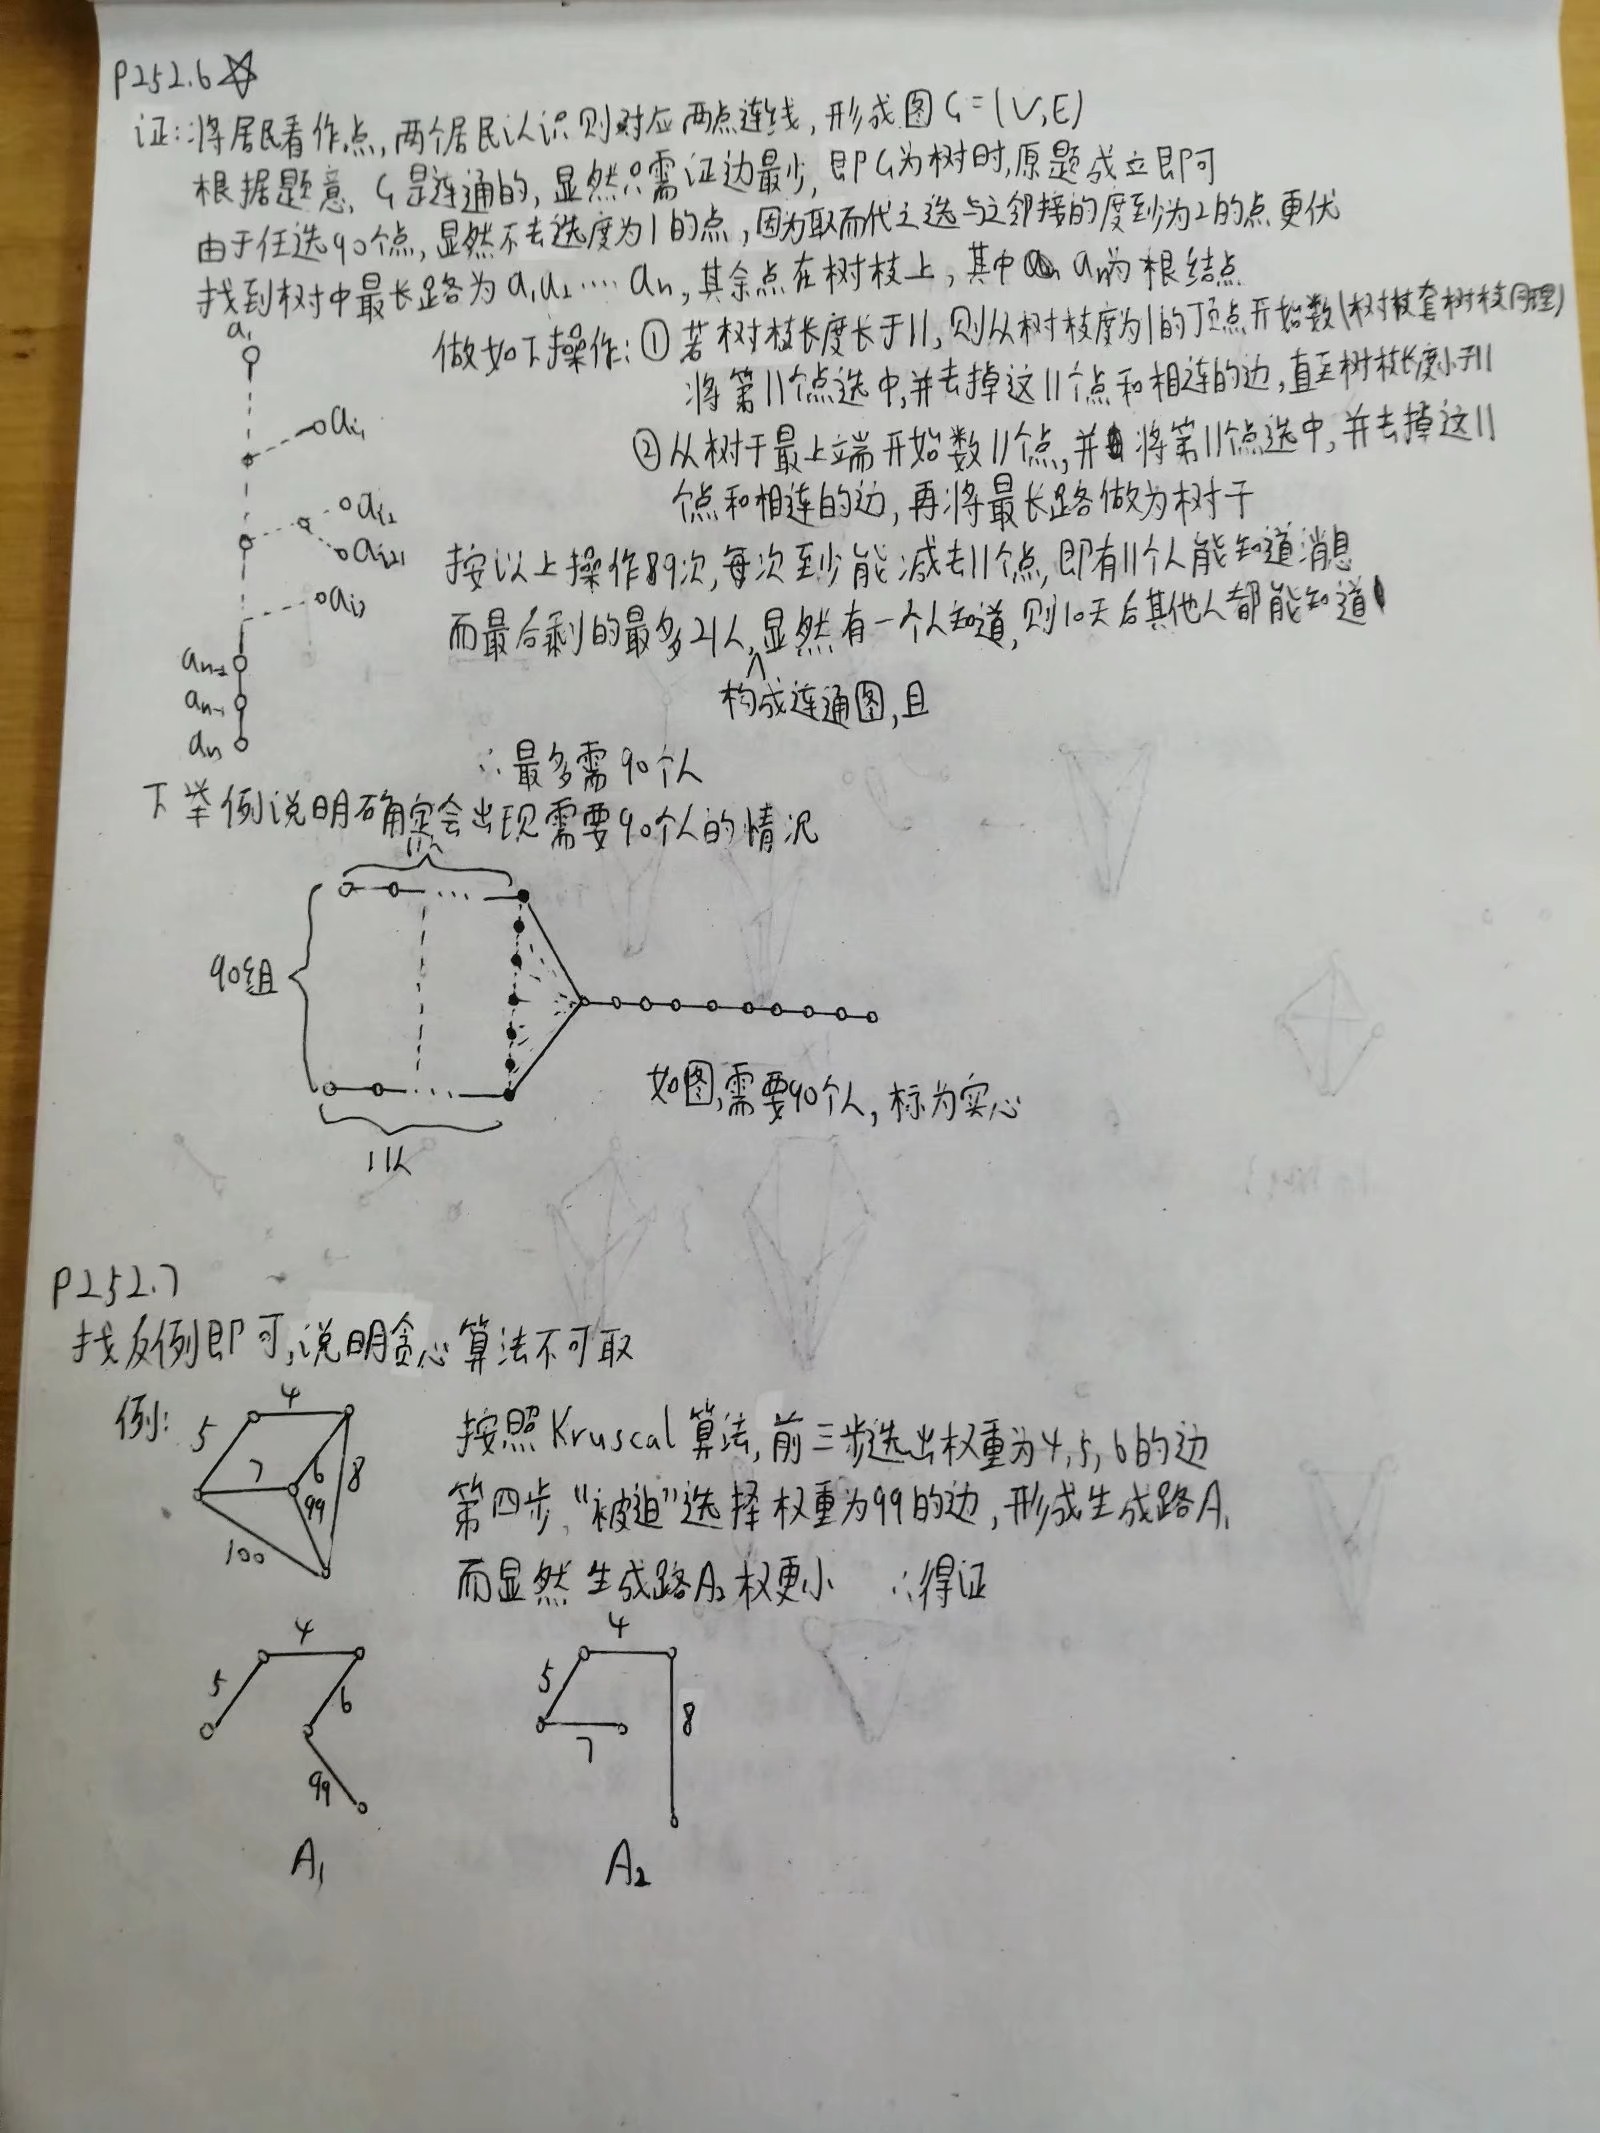 P252.6☆
证:将居民看作点,两个居民认识则对应两点连线,形成图G=(V,E)
根据题意,G是连通的,显然只需证边最少,即G为树时,原题成立即可
由于任选90个点,显然不去选度为1的点,因为取而代之选与之邻接的度至少为2的点更优
找到树中最长路为a₁a₂……aₙ,其余点在树枝上,其中aₙ为根结点
a₁
aᵢ₁
aᵢ₂
aᵢ₂₁
aᵢ₃
aₙ₋₂
aₙ₋₁
aₙ
做如下操作:①若树枝长度长于11,则从树枝度为1的顶点开始数(树枝套树枝同理)
将第11个点选中,并去掉这11个点和相连的边,直至树枝长度小于11
②从树干最上端开始数11个点,并将第11个点选中,并去掉这11
个点和相连的边,再将最长路做为树干
按以上操作89次,每次至少能减去11个点,即有11个人能知道消息
而最后剩的最多21人,构成连通图,且显然有一个人知道,则10天后其他人都能知道
∴最多需90个人
下举例说明确实会出现需要90个人的情况
11人
90组
如图,需要90个人,标为实心
11人
P252.7
找反例即可,说明贪心算法不可取
例:
4
5
7
6
8
99
100
按照Kruscal算法,前三步选出权重为4,5,6的边
第四步,“被迫”选择权重为99的边,形成生成路A₁
而显然生成路A₂权更小 ∴得证
4
5
6
99
A₁
4
5
7
8
A₂